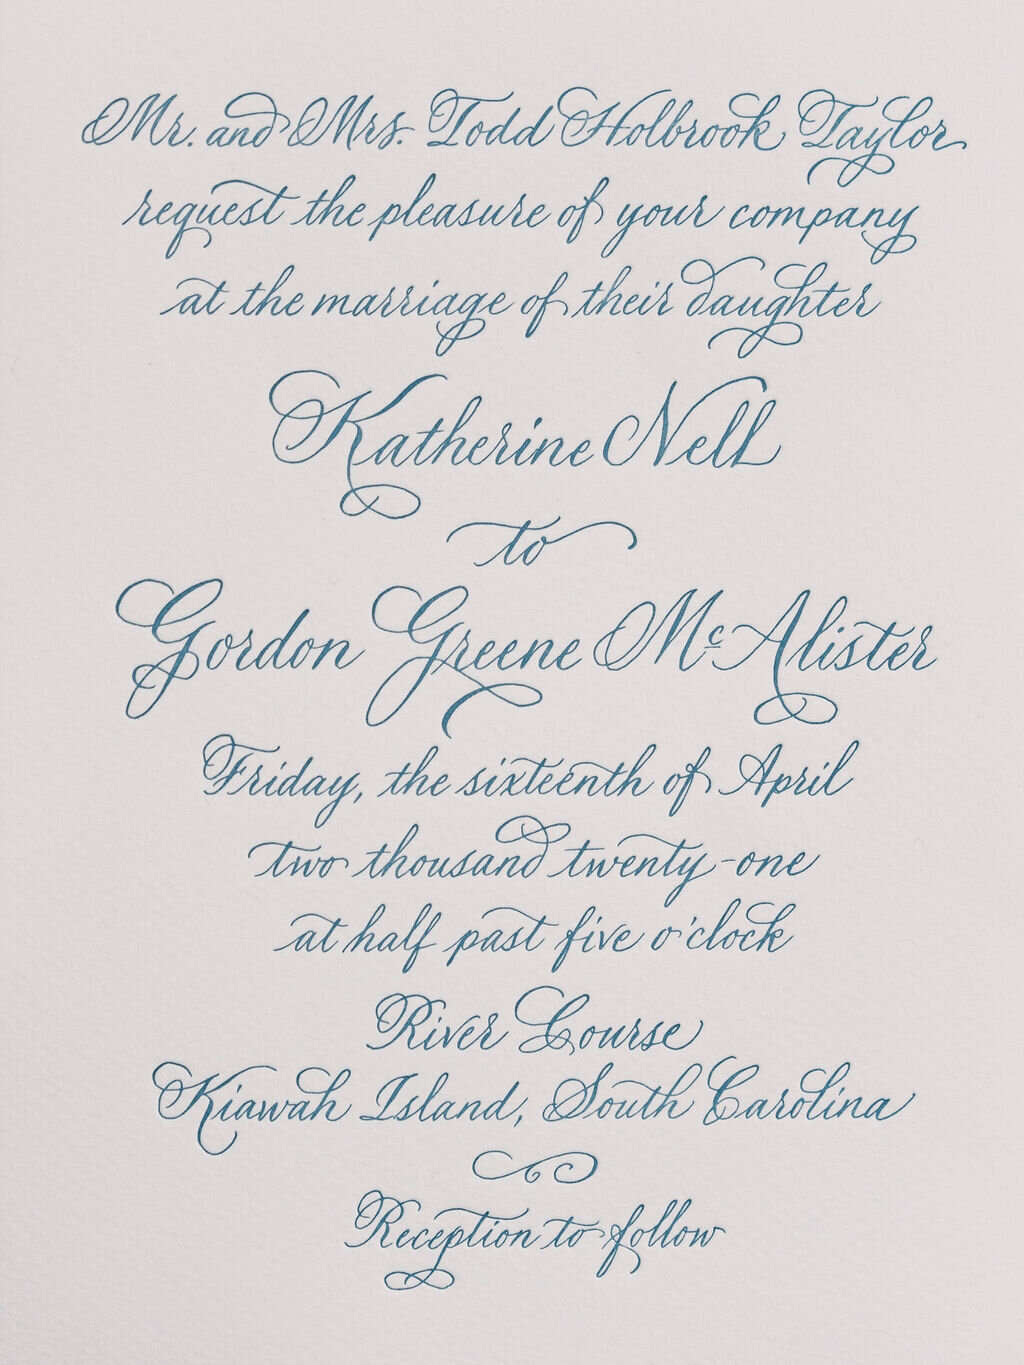 Mr. and Mrs. Todd Holbrook Taylor
request the pleasure of your company
at the marriage of their daughter
Katherine Nell
to
Gordon Greene McAlister
Friday, the sixteenth of April
two thousand twenty-one
at half past five o'clock
River Course
Kiawah Island, South Carolina
Reception to follow